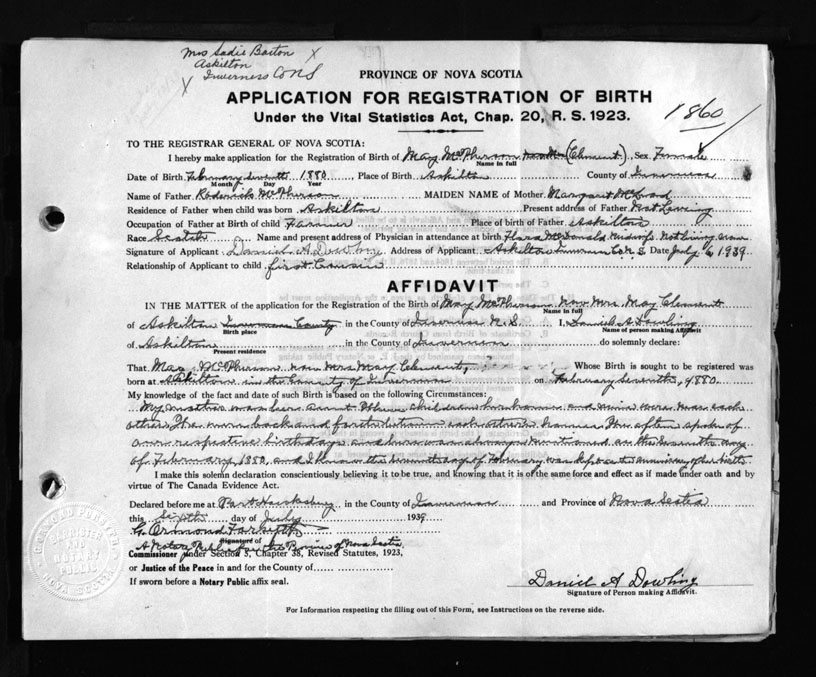 Mrs Sadie Barton X
Askilton
X Inverness Co N S
PROVINCE OF NOVA SCOTIA
APPLICATION FOR REGISTRATION OF BIRTH
Under the Vital Statistics Act, Chap. 20, R. S. 1923.
1860
TO THE REGISTRAR GENERAL OF NOVA SCOTIA:
I hereby make application for the Registration of Birth of May McPherson (Clement), Sex Female
Name in full
Date of Birth February Seventh 1880 Place of Birth Askilton County of Inverness
Month Day Year
Name of Father Roderick McPherson MAIDEN NAME of Mother Margaret McLeod
Residence of Father when child was born Askilton Present address of Father Not Living
Occupation of Father at Birth of child Farmer Place of birth of Father Askilton
Race Scotch Name and present address of Physician in attendance at birth Flora McDonald midwife not living now
Signature of Applicant Daniel A Dowling Address of Applicant Askilton Inverness Co N.S. Date July 6 1939
Relationship of Applicant to child first Cousin
AFFIDAVIT
IN THE MATTER of the application for the Registration of Birth of May McPherson now Mrs May Clement
Name in full
of Askilton Inverness County in the County of Inverness N.S. I, Daniel A Dowling
Birth place Name of person making Affidavit
of Askilton in the County of Inverness do solemnly declare:
Present residence
That May McPherson now Mrs May Clement, Whose Birth is sought to be registered was
born at Askilton in the County of Inverness on February Seventh, 1880.
My knowledge of the fact and date of such Birth is based on the following Circumstances:
My mother was her aunt When children her home and mine were near each
other We were back and forth to each others homes We often spoke of
our respective birthdays and hers was always mentioned as the seventh day
of February, 1880, and I know the seventh day of February was kept as the anniversary of her birth.
I make this solemn declaration conscientiously believing it to be true, and knowing that it is of the same force and effect as if made under oath and by
virtue of The Canada Evidence Act.
Declared before me at Port Hawkesbury in the County of Inverness and Province of Nova Scotia
this Sixth day of July 1939
G. Ormond Forsyth
Signature of
A Notary Public for the Province of Nova Scotia
Commissioner under Section 3, Chapter 38, Revised Statutes, 1923,
or Justice of the Peace in and for the County of
If sworn before a Notary Public affix seal.
Daniel A Dowling
Signature of Person making Affidavit.
For Information respecting the filling out of this Form, see Instructions on the reverse side.
BARRISTER
AND
NOTARY
PUBLIC
NOVA SCOTIA